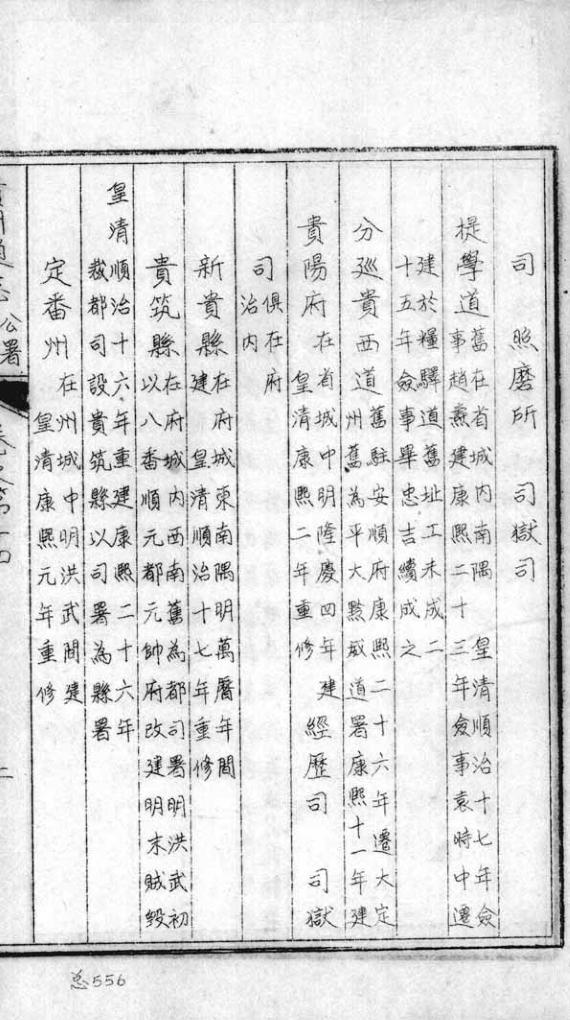 司　照磨所　司獄司
提學道 舊在省城内南隅　皇清順治十七年僉
事趙燾建康熙二十三年僉事袁時中遷
建於糧驛道舊址工未成二
十五年僉事畢忠吉續成之
分巡貴西道 舊駐安順府康熙二十六年遷大定
州舊為平大黔威道署康熙十一年建
貴陽府 在省城中明隆慶四年建
皇清康熙二年重修 經歷司　司獄
司 俱在府
治内
新貴縣 在府城東南隅明萬曆年間
建皇清順治十七年重修
貴筑縣 在府城内西南舊為都司署明洪武初
以八番順元都元帥府改建明末賊毀
皇清 順治十六年重建康熙二十六年
裁都司設貴筑縣以司署為縣署
定番州 在州城中明洪武間建
皇清康熙元年重修
公署
总556